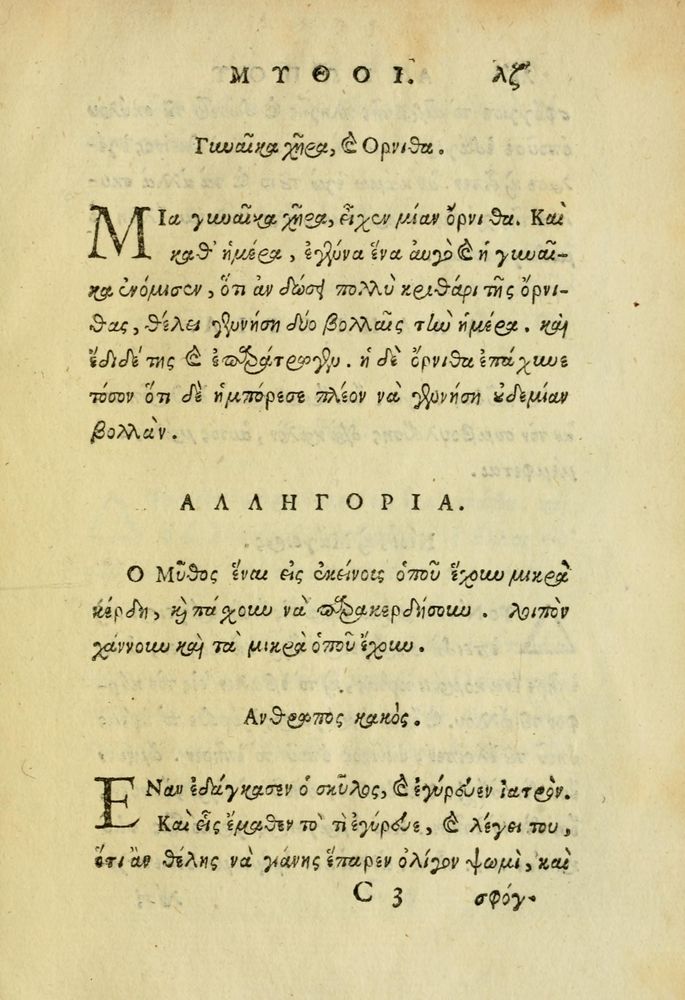 ΜΥΘΟΙ. λζ
Γυναῖκα χῆρα, καὶ Ορνιθα.
ΜΙα γυναῖκα χῆρα, εἶχεν μίαν ὄρνιθα. Καὶ
καθ' ἡμέρα, ἐγέννα ἕνα αυγὸ καὶ ἡ γυναῖ-
κα ἐνόμισεν, ὅτι ἀν δώσῃ πολλὺ κριθάρι τῆς ὄρνι-
θας, θέλει γεννήση δύο βολλαῖς τὴν ἡμέρα. καὶ
ἔδιδέ της καὶ ἐπαράτρωγεν. ἡ δὲ ὄρνιθα ἐπάχυνε
τόσον ὅτι δὲ ἠμπόρεσε πλέον νὰ γεννήση οὐδεμίαν
βολλὰν.
ΑΛΛΗΓΟΡΙΑ.
Ο Μῦθος ἔναι εἰς ἐκείνοις ὁποῦ ἔχουν μικρὰ
κέρδη, καὶ πάχουν νὰ παρακερδήσουν. λοιπὸν
χάννουν καὶ τὰ μικρὰ ὁποῦ ἔχουν.
Ανθρωπος κακὸς.
ΕΝαν ἐδάγκασεν ὁ σκῦλος, καὶ ἐγύρευεν Ιατρὸν.
Καὶ εἷς ἔμαθεν τὸ τὶ ἐγύρευε, καὶ λέγει του,
ὅτι ἂν θέλης νὰ γιάνης ἔπαρεν ὀλίγον ψωμὶ, καὶ
C 3 σφόγ-